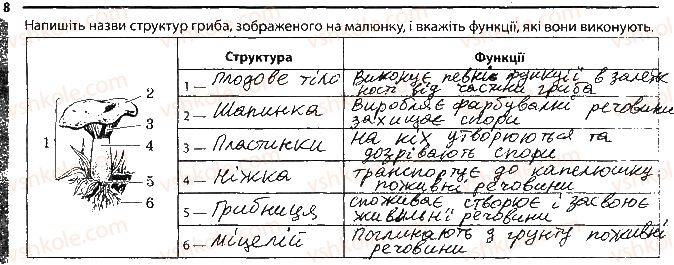 8
Напишіть назви структур гриба, зображеного на малюнку, і вкажіть функції, які вони виконують.
Структура Функції
1 — Плодове тіло Виконує певні функції в залеж
ності від частини гриба
2 — Шапинка Виробляє фарбувалкі речовини
захищає спори
3 — Пластинки На них утворюються та
дозрівають спори
4 — Ніжка транспортує до капелюшку
поживні речовини
5 — Грибниця споживає створює і засвоює
живильні речовини
6 — Міцелій Поглинають з грунту поживні
речовини
1
2
3
4
5
6
vshkole.com